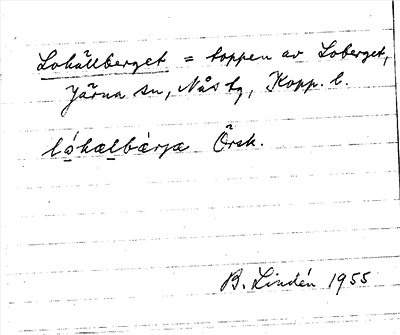 Lohällberget = toppen av Loberget,
Järna sn, Nås tg, Kopp. l.
lo̱hæḻbærjæ Örsk.
B. Lindén 1955